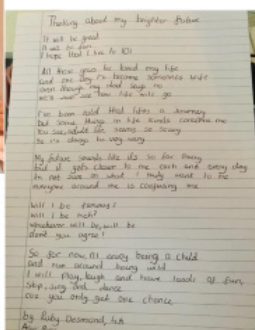 Thinking about my brighter future
It will be great
It will be fun
I hope that I live to 101
All these years be loved my life
And one day I'm become someones wife
even though my dad says no
we'll see how life will go
I've been told that life's a Journey
but some things in life kinda concern me
You see, adult life seems so scary
So I'm always very wary
My future seems like its so far away
But it gets closer to me each and every day
I'm not sure on what I truly want to be
everyone around me is confusing me
Will I be famous?
Will I be rich?
whatever will be, will be
don't you agree!
So for now I'll enjoy being a child
and run around being wild
I will play, laugh and have loads of fun,
Skip, sing and dance
coz you only get one chance
by Ruby Desmond,